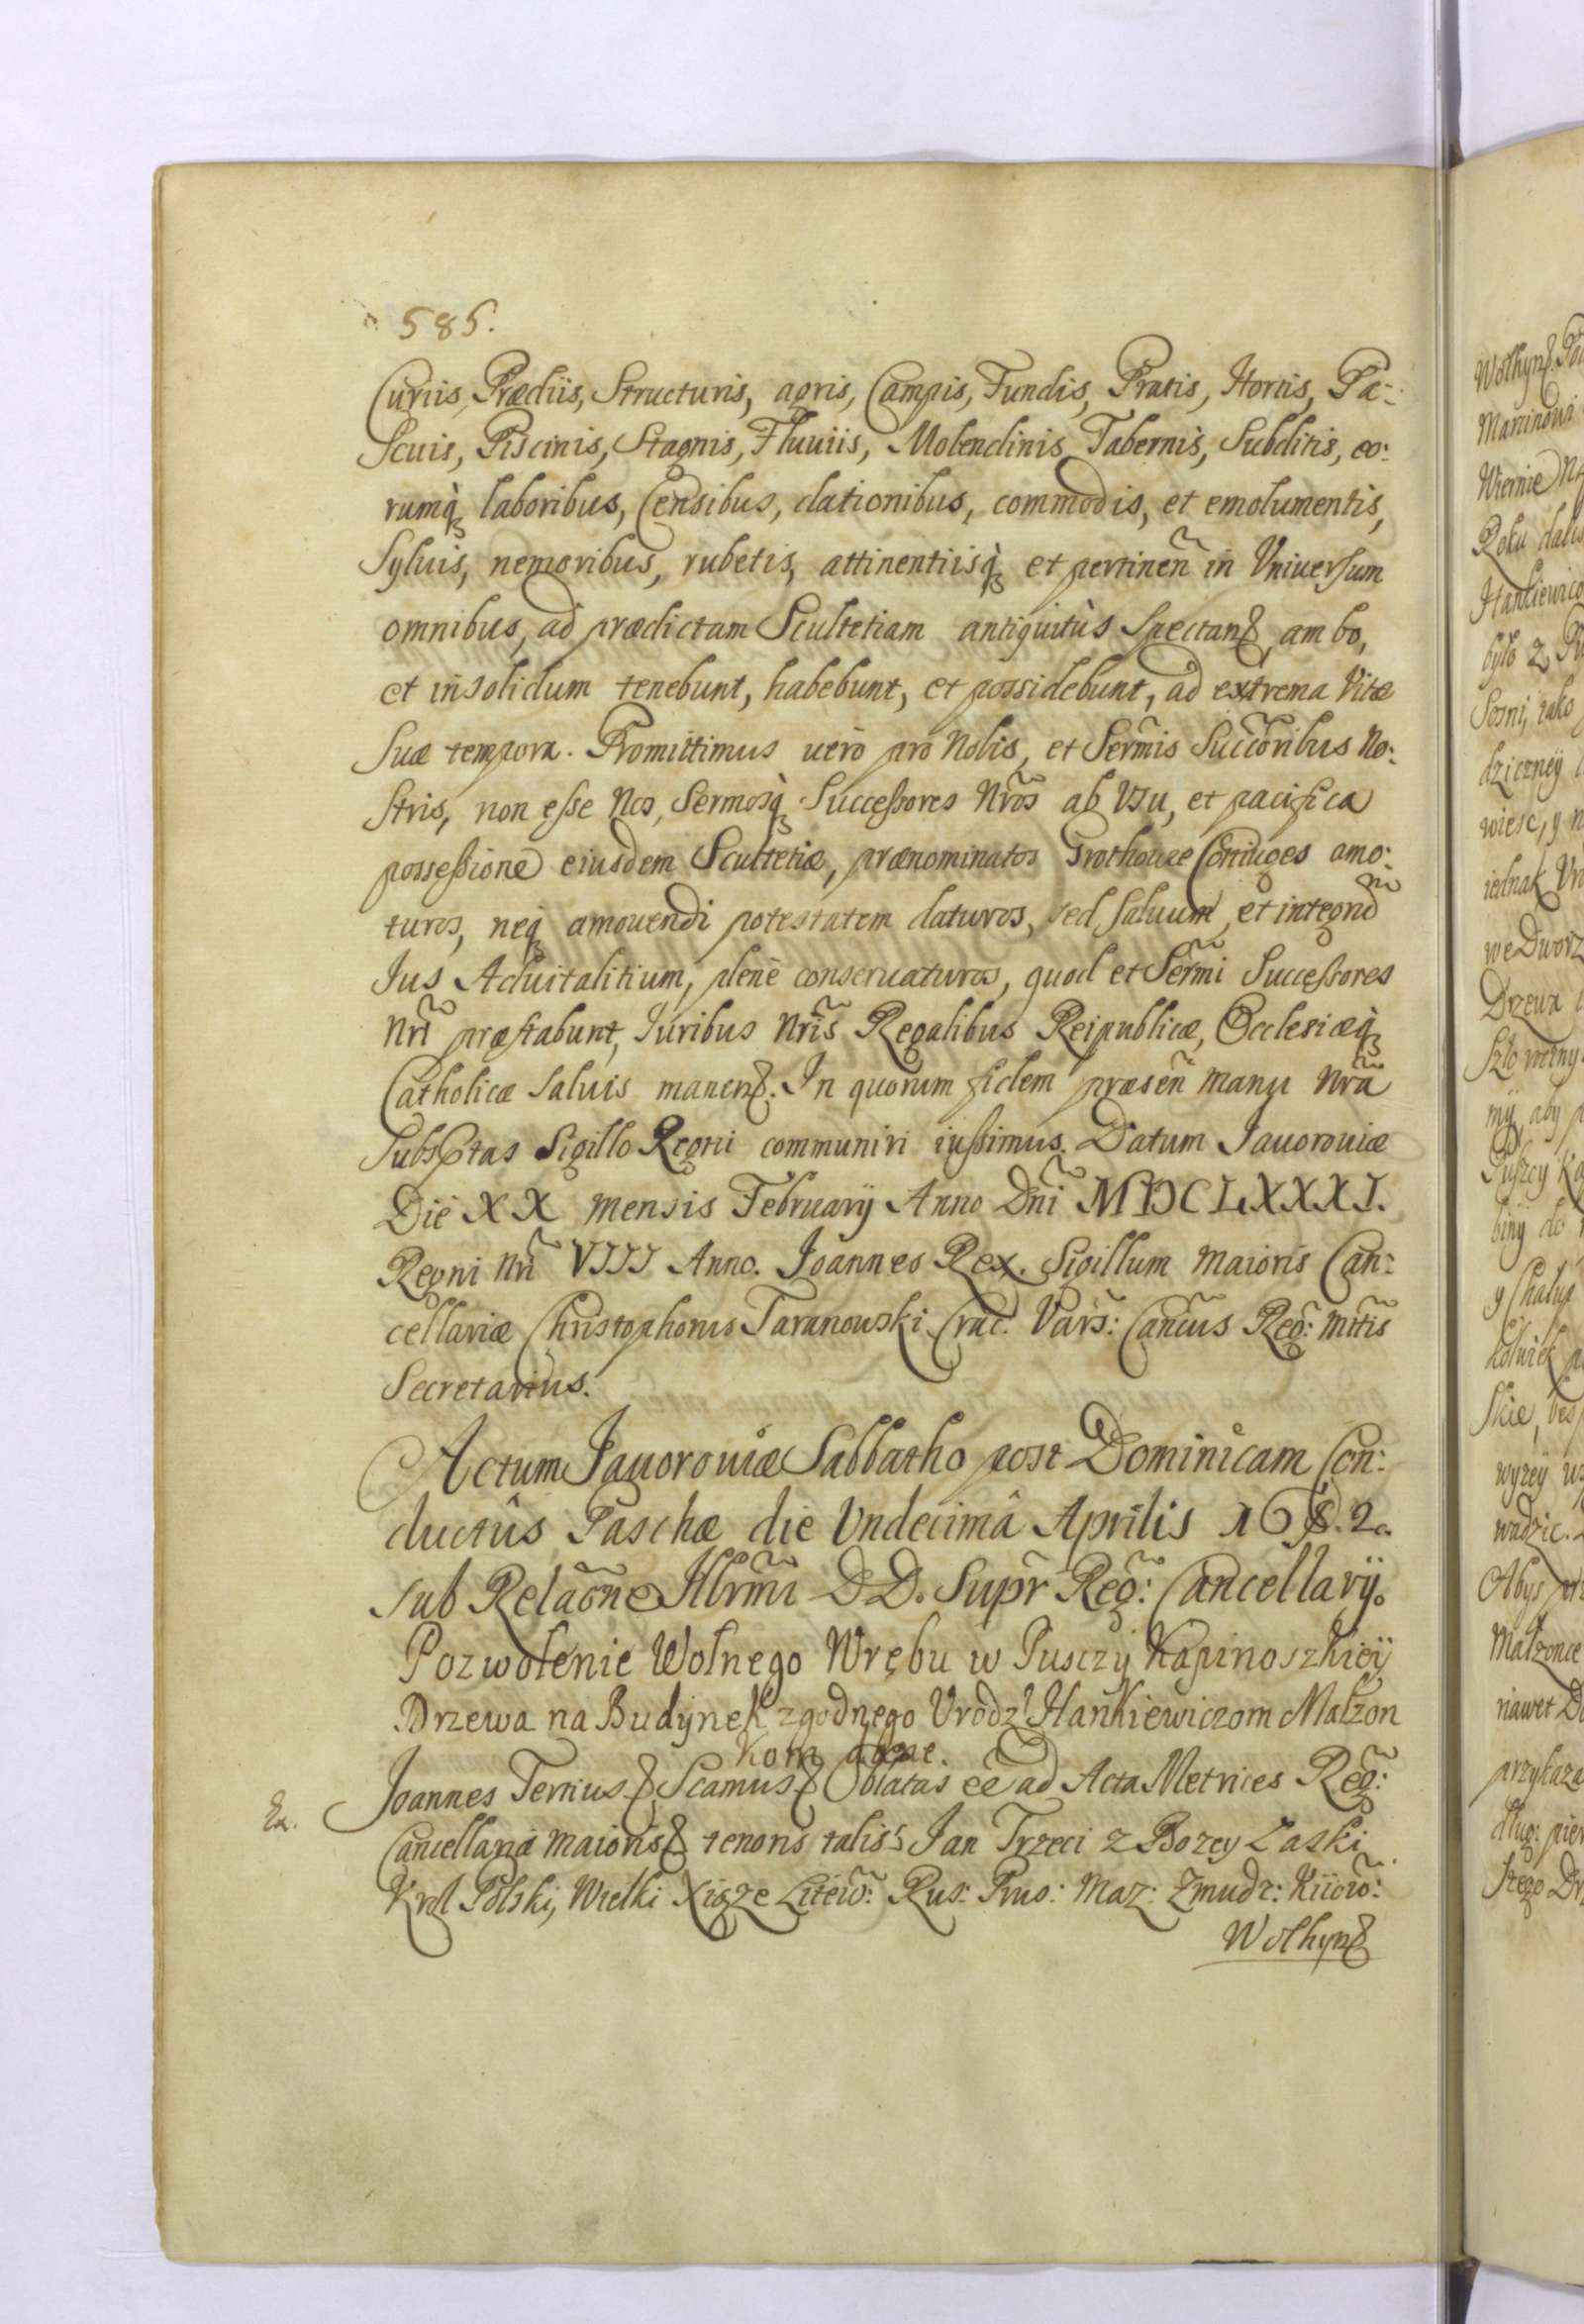 585.
Curiis, Prædiis, Structuris, agris, Campis, Fundis, Pratis, Hortis, Pa-
scuis, Piscinis, Stagnis, Fluuiis, Molendinis, Tabernis, Subditis, eo:
rumq̀ laboribus, Censibus, dationibus, commodis, et emolumentis,
Syluis, nemoribus, rubetis, attinentiisq̀ et pertineñ in Vniuersum
omnibus, ad prædictam Scultetiam antiquitùs Spectan, ambo,
et in solidum tenebunt, habebunt, et possidebunt, ad extrema Vitæ
suæ tempora. Promittimus uerò pro Nobis, et Serm̃is Succ̃oribus No:
stris, non esse Nos, Sermosq̀ Successores Nr̃os ab Vsu, et pacifica
possessione eiusdem Scultetiæ, prænominatos Grothouae Coniuges amo:
turos, neq amouendi potestatem daturos, sed Saluum, et integrũ
Ius Aduitalitium, plenè conseruaturos, quod et Serm̃i Successores
Nr̃i præstabunt, Iuribus Nr̃is Regalibus Reipublicæ, Ecclesiæq̀
Catholicæ saluis manen. In quorum fidem præseñ manu Nr̃a
Subsptas Sigillo Regni communiri iussimus. Datum Iauorouiæ
Die XX mensis Februarÿ Anno Dñi MDCLXXXI.
Regni Nr̃i VIII Anno. Ioannes Rex. Sigillum Maioris Can:
cellariæ Christophorus Taranouski Crac. Vars: Cañcus Reg: Mtis
Secretarius.
Actum Iauorouiæ Sabbatho post Dominicam Con:
ductûs Paschæ die Vndecimâ Aprilis 1682.
sub Relãone Illrm̃i DD. Supr Reg: Cancellarÿ.
Pozwolenie Wolnego Wrębu w Pusczÿ Kapinoszkieÿ
Drzewa na Budÿnek zgodnego Vrodz! Hankiewiczom Małzon
kom dane.
Ex. Joannes Tertius Scamus Oblatas eẽ ad Acta Metrices Reg:
Cancellariæ maioris tenoris talis: Jan Trzeci z Bozey Łaski
Krol Polski, Wielki Xiąze Litew: Rus: Prus: Maz: Zmudz: Kiiow:
Wolhyn